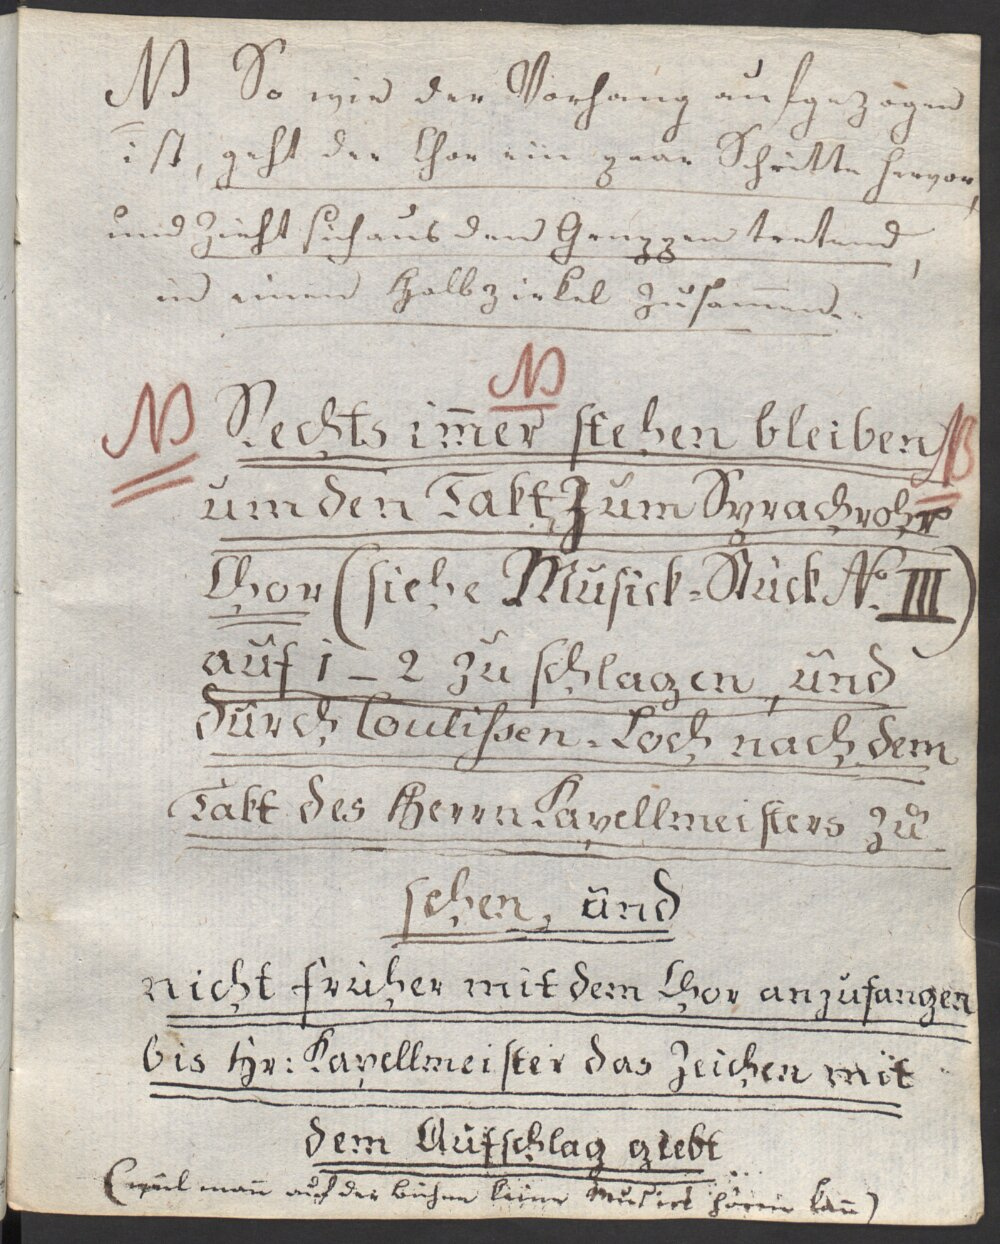 NB So wie der Vorhang aufgezogen
ist, geht der Chor ein paar Schritte hervor,
und zieht sich aus den Gruppen tretend,
in einen Halbzirkel zusam̄en.
NB
NB Rechts im̄er stehen bleiben NB
um den Takt zum Sprachrohr
Chor (siehe Musick=Stück No. III)
auf 1 – 2 zu schlagen, und
durch Coulissen-Loch nach dem
Takt des Herrn Kapellmeisters zu
sehen, und
nicht früher mit dem Chor anzufangen
bis Hr: Kapellmeister das Zeichen mit
dem Aufschlag giebt
(weil man̄ auf der Bühne keine Musick hören kan̄)